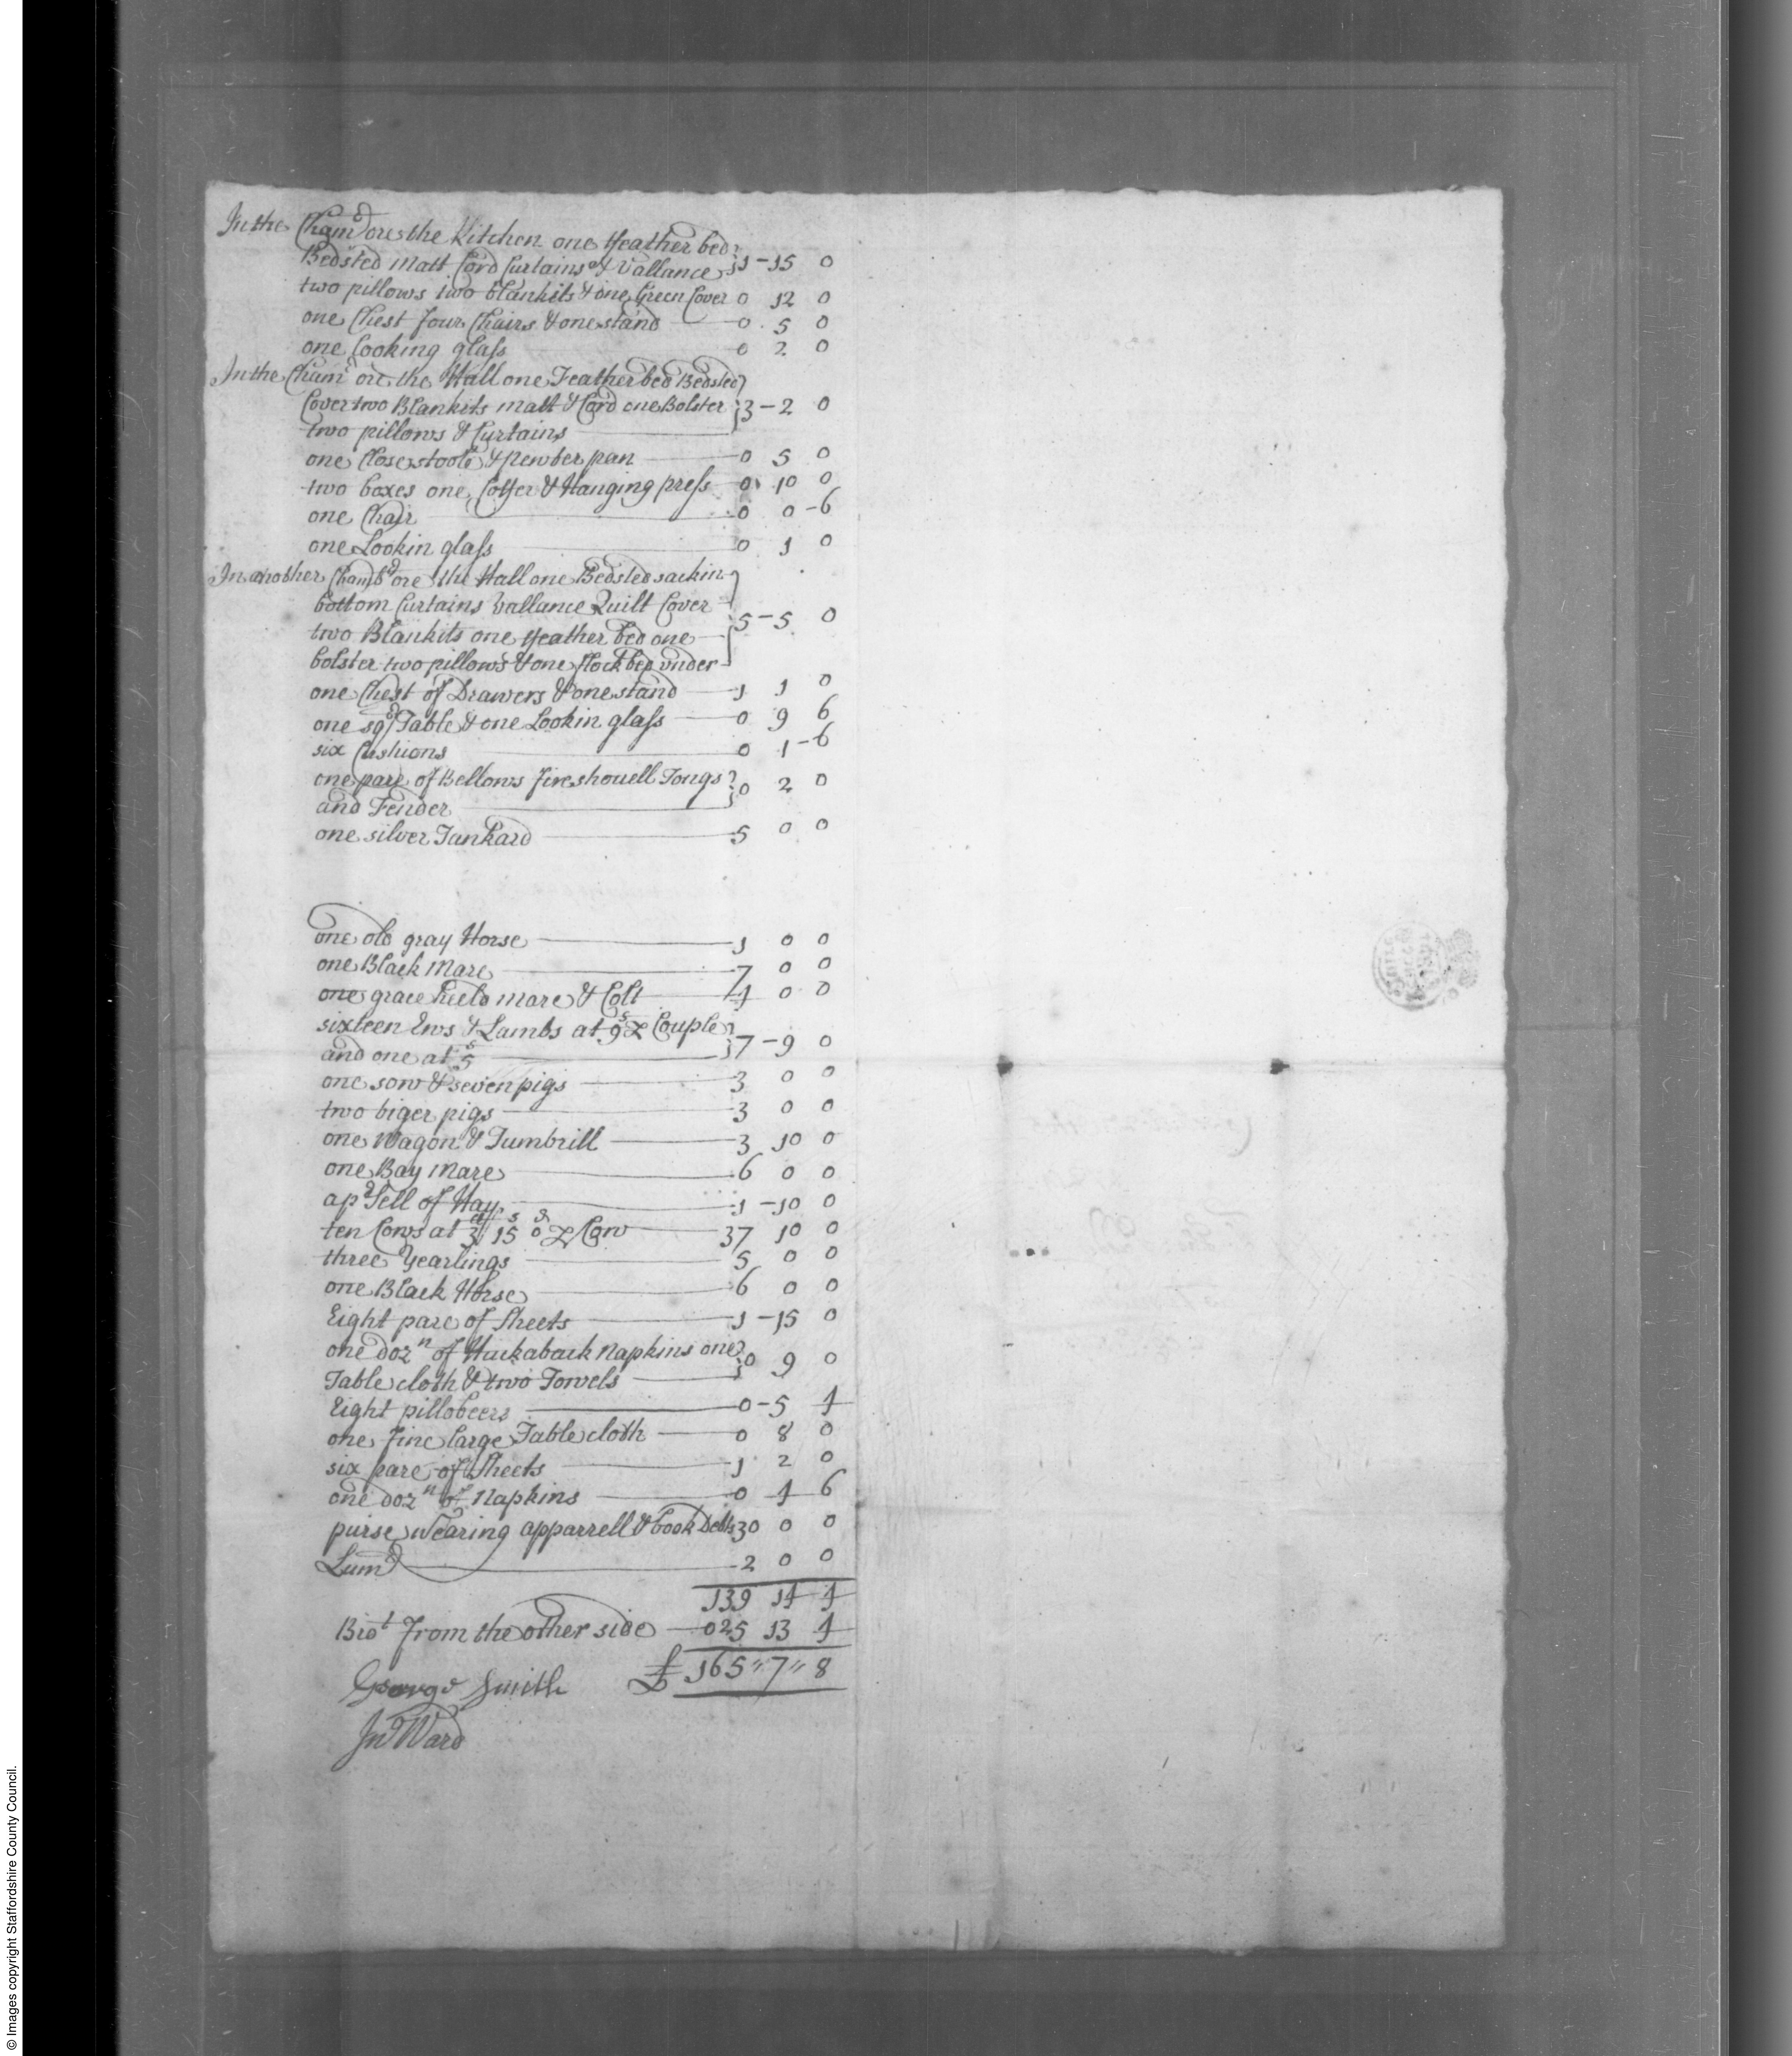 In the Chambr ore the Kitchen one ffeather bed
Bedsted Matt Cord Curtains & Vallance 1-15 0
two pillows two blankits & one Green Cover 0 12 0
one Chest four Chairs & one stand 0 5 0
one Looking glass 0 2 0
In the Chambr ore the Hall one Feather bed Bedsted
Cover two Blankits matt & Cord one Bolster 3-2 0
two pillows & Curtains
one Close stoole & pewter pan 0 5 0
two boxes one Coffer & Hanging press 0 10 0
one Chair 0 0-6
one Lookin glass 0 1 0
In another Chambr ore the Hall one Bedsted sackin
bottom Curtains Vallance Quilt Cover
two Blankits one ffeather bed one 5-5 0
bolster two pillows & one flock bed under
one Chest of Drawers & one stand 1 1 0
one sqr Table & one Lookin glass 0 9 6
six Cushions 0 1-6
one pare of Bellows fireshouell Tongs 0 2 0
and Fender
one silver Tankard 5 0 0
one old gray Horse 1 0 0
one Black Mare 7 0 0
one grace heeld mare & Colt 4 0 0
sixteen Ews & Lambs at 9s p Couple
and one at 5s 7-9 0
one sow & seven pigs 3 0 0
two biger pigs 3 0 0
one Wagon & Tumbrill 3 10 0
one Bay Mare 6 0 0
a prsell of Hay 1-10 0
ten Cows at 3ll 15s 0d p Cow 37 10 0
three Yearlings 5 0 0
one Black Horse 6 0 0
Eight pare of Sheets 1-15 0
one dozn of Huckaback Napkins one 0 9 0
Table cloth & two Towels
Eight pillobeers 0-5 4
one fine large Table cloth 0 8 0
six pare of Sheets 1 2 0
one dozn of Napkins 0 4 6
purse wearing apparrell & book Debts 30 0 0
Lumbr 2 0 0
139 14 4
Brot from the other side 025 13 4
George Smith £ 165" 7" 8
Jno Ward
© Images copyright Staffordshire County Council.